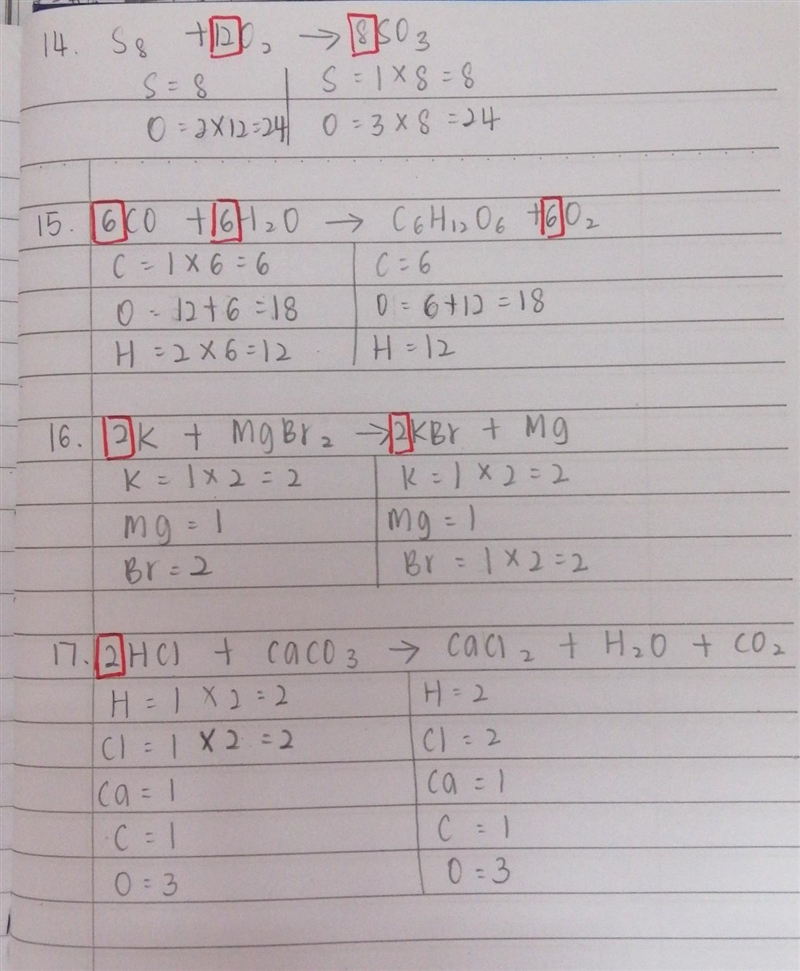 14. S₈ + 12O₂ → 8SO₃
S = 8 | S = 1 × 8 = 8
O = 2×12=24 | O = 3 × 8 = 24
15. 6CO + 6H₂O → C₆H₁₂O₆ + 6O₂
C = 1 × 6 = 6 | C = 6
O = 12+6 = 18 | O = 6+12 = 18
H = 2 × 6 = 12 | H = 12
16. 2K + MgBr₂ → 2KBr + Mg
K = 1 × 2 = 2 | K = 1 × 2 = 2
Mg = 1 | Mg = 1
Br = 2 | Br = 1 × 2 = 2
17. 2HCl + CaCO₃ → CaCl₂ + H₂O + CO₂
H = 1 × 2 = 2 | H = 2
Cl = 1 × 2 = 2 | Cl = 2
Ca = 1 | Ca = 1
C = 1 | C = 1
O = 3 | O = 3